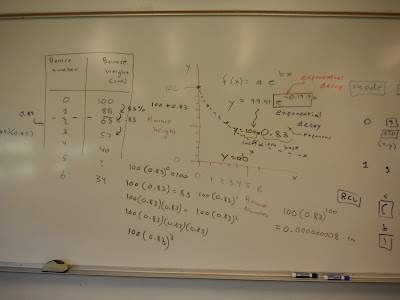 Bounce number Bounce height (cm)
0 100
1 85
2 68
3 57
4 40
5 ?
6 34
83%
.83
0.83
100 × 0.83
y
100
Bounce height
0
0 1 2 3 4 5 6
x
Bounce Number
f(x) = a e^bx
exponential decay
y = 99.41 e
exponential decay
y = 100 · 0.83^x
exponent
coefficient base
y = ab^x
100(0.83)^0 = 100
100(0.83) = 83 100(0.83)^1
100(0.83)(0.83) = 100(0.83)^2
100(0.83)(0.83)(0.83)
100(0.83)^3
100(0.83)^100
= 0.000000008 cm
mode
0
(x,y)
1 9
RCL
(
b
)